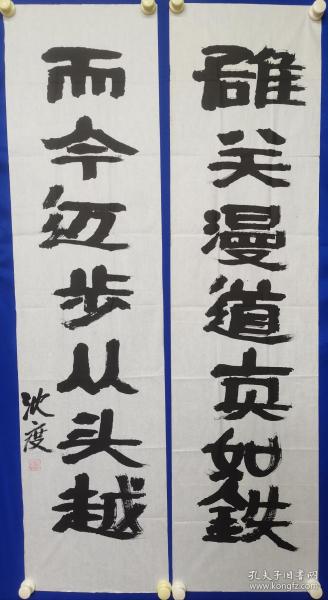 雄关漫道真如鉄
而今迈步从头越
沈度
孔夫子旧书网